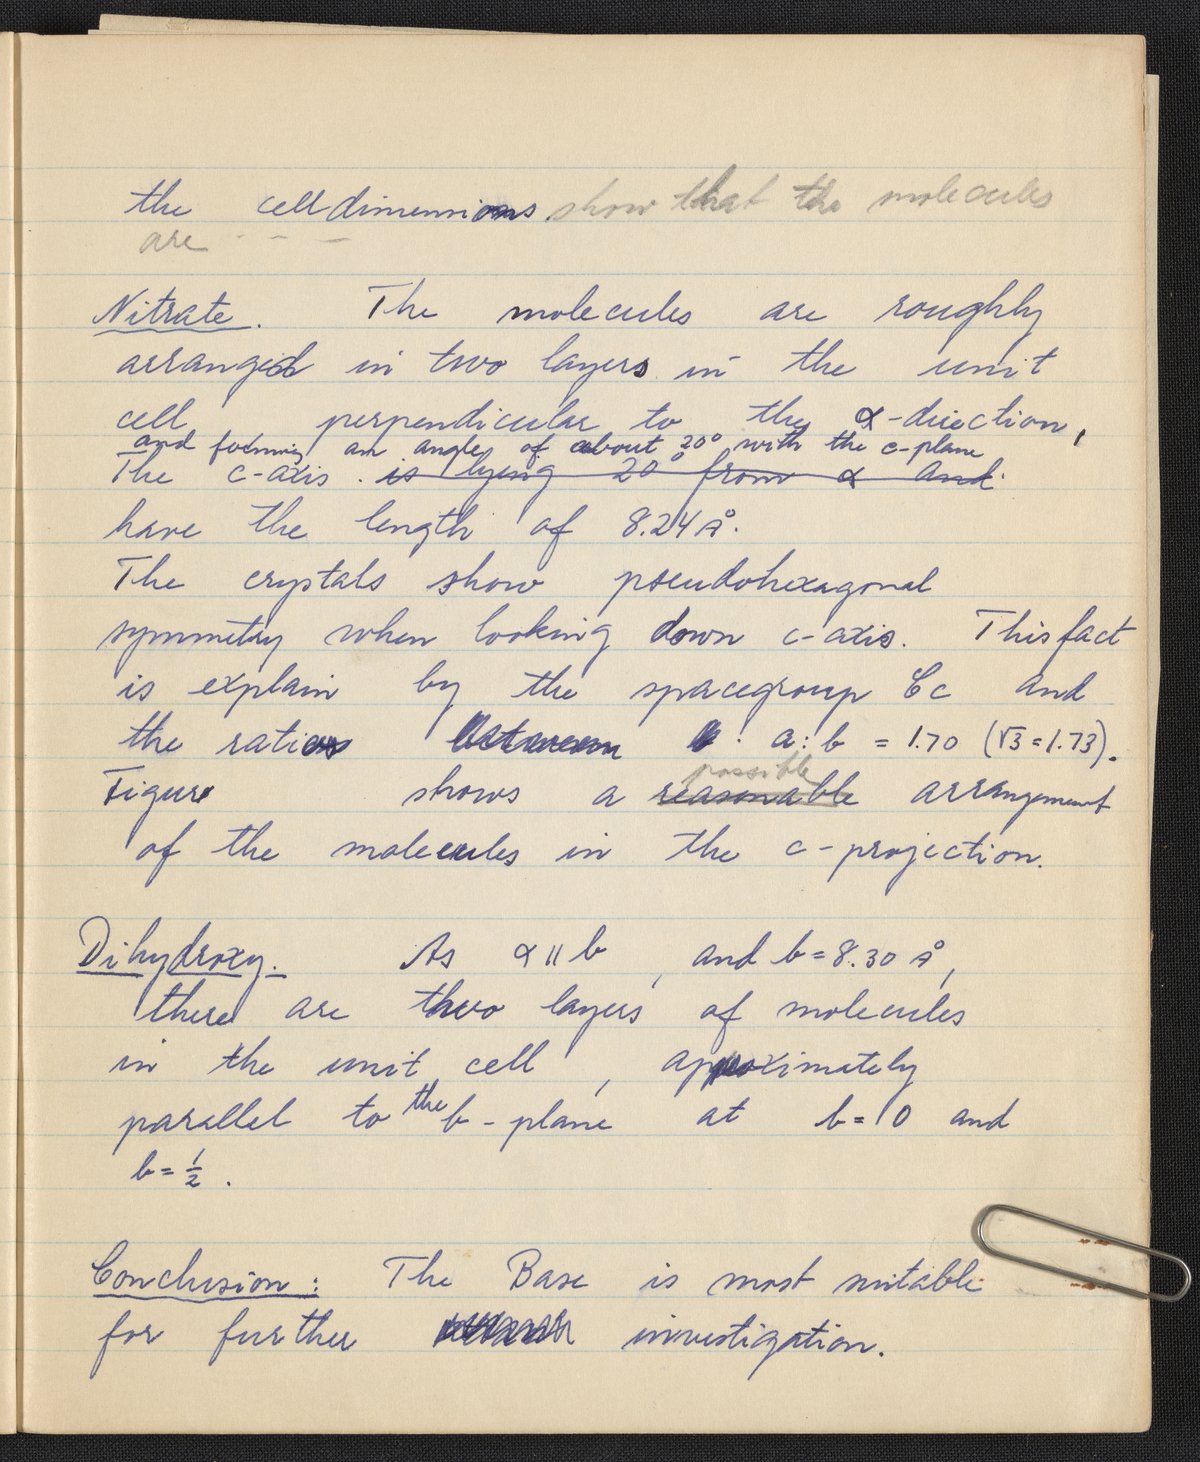 the cell dimensions show that the molecules
are - - -
Nitrate. The molecules are roughly
arranged in two layers in the unit
cell perpendicular to the α-direction,
and forming an angles of about 20° with the c-plane
The c-axis. is lying 20° from α and
have the length of 8.24 Å.
The crystals show pseudohexagonal
symmetry when looking down c-axis. This fact
is explain by the spacegroup Cc and
the ratio between a:b = 1.70 (√3 = 1.73).
possible
Figure shows a reasonable arrangement
of the molecules in the c-projection.
Dihydroxy. As α || b, and b = 8.30 Å,
there are two layers of molecules
in the unit cell, approximately
parallel to the b-plane at b = 0 and
b = 1/2.
Conclusion: The Base is most suitable
for further investigation.